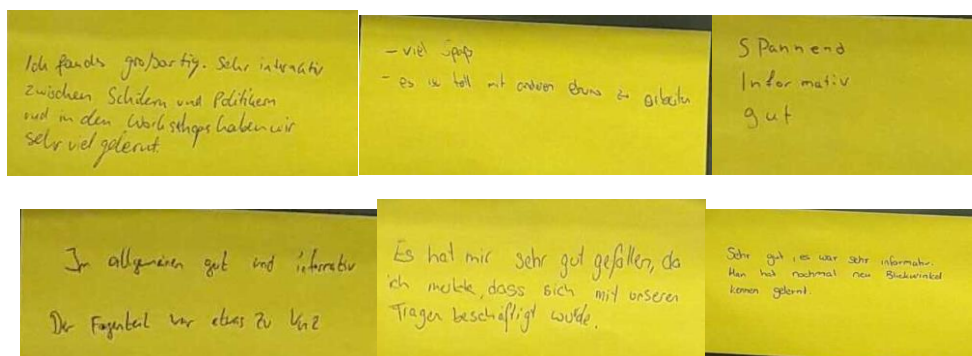 Ich fands großartig. Sehr informativ
zwischen Schülern und Politikern
und in den Workshops haben wir
sehr viel gelernt.
- viel Spaß
- es ist toll mit anderen etwas zu arbeiten
Spannend
Informativ
gut
Im allgemeinen gut und informativ
Der Fragenteil war etwas zu kurz
Es hat mir sehr gut gefallen, da
ich merkte, dass sich mit unseren
Fragen beschäftigt wurde.
Sehr gut, es war sehr informativ.
Man hat nochmal neu Blickwinkel
kennen gelernt.